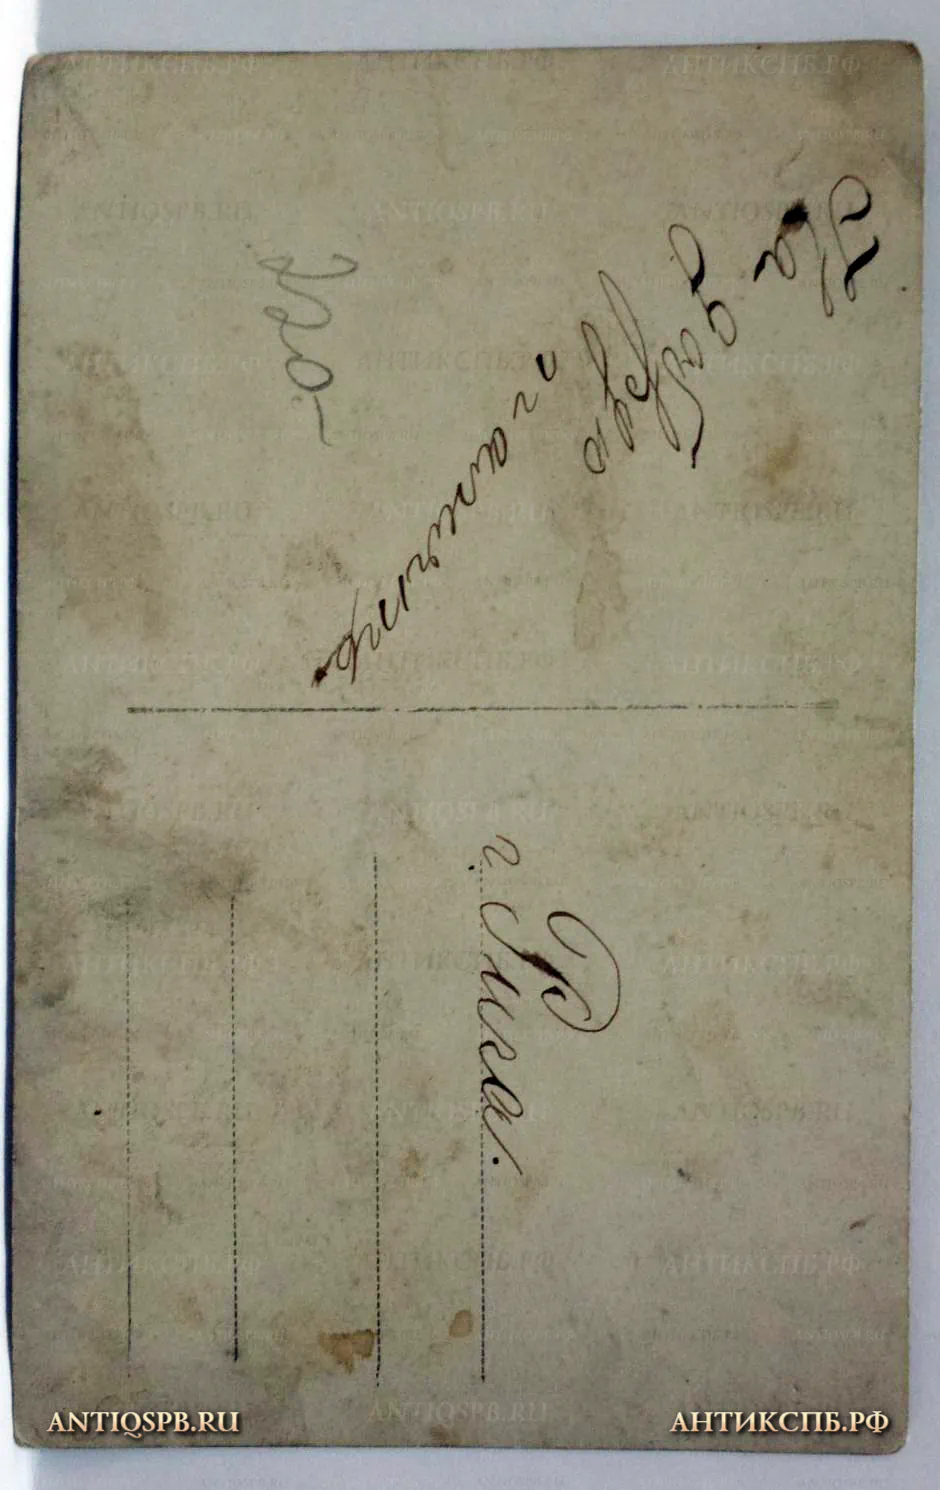 На
добрую
память
320-
г. Рига.
ANTIQSPB.RU
АНТИКСПБ.РФ